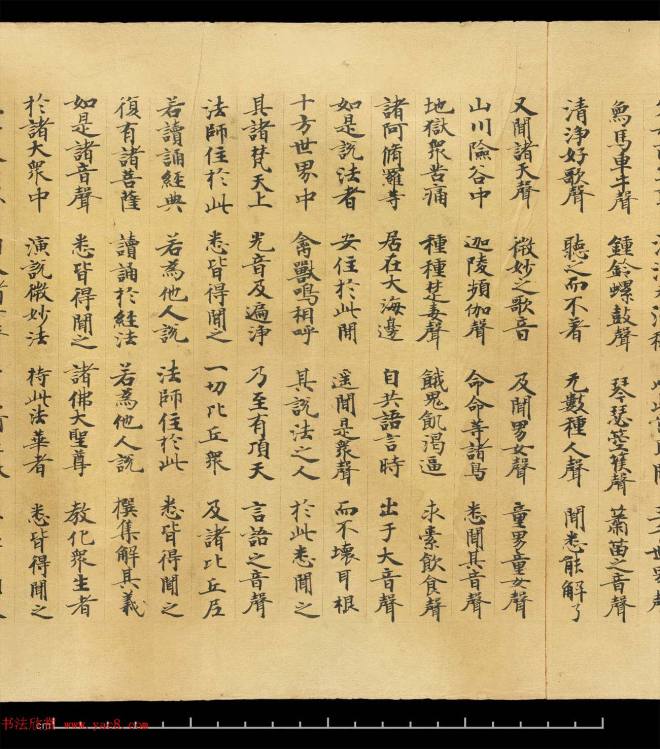 象馬車牛聲 鍾鈴螺鼓聲 琴瑟箜篌聲 簫笛之音聲
清淨好歌聲 聽之而不著 无數種人聲 聞悉能解了
又聞諸天聲 微妙之歌音 及聞男女聲 童男童女聲
山川險谷中 迦陵頻伽聲 命命等諸鳥 悉聞其音聲
地獄衆苦痛 種種楚毒聲 餓鬼飢渴逼 求索飲食聲
諸阿脩羅等 居在大海邊 自共語言時 出于大音聲
如是說法者 安住於此間 遥聞是衆聲 而不壞耳根
十方世界中 禽獸鳴相呼 其說法之人 於此悉聞之
其諸梵天上 光音及遍淨 乃至有頂天 言語之音聲
法師住於此 悉皆得聞之 一切比丘衆 及諸比丘尼
若讀誦經典 若為他人說 法師住於此 悉皆得聞之
復有諸菩薩 讀誦於經法 若為他人說 撰集解其義
如是諸音聲 悉皆得聞之 諸佛大聖尊 教化衆生者
於諸大衆中 演說微妙法 持此法華者 悉皆得聞之
书法欣赏 www.yac8.com
cm